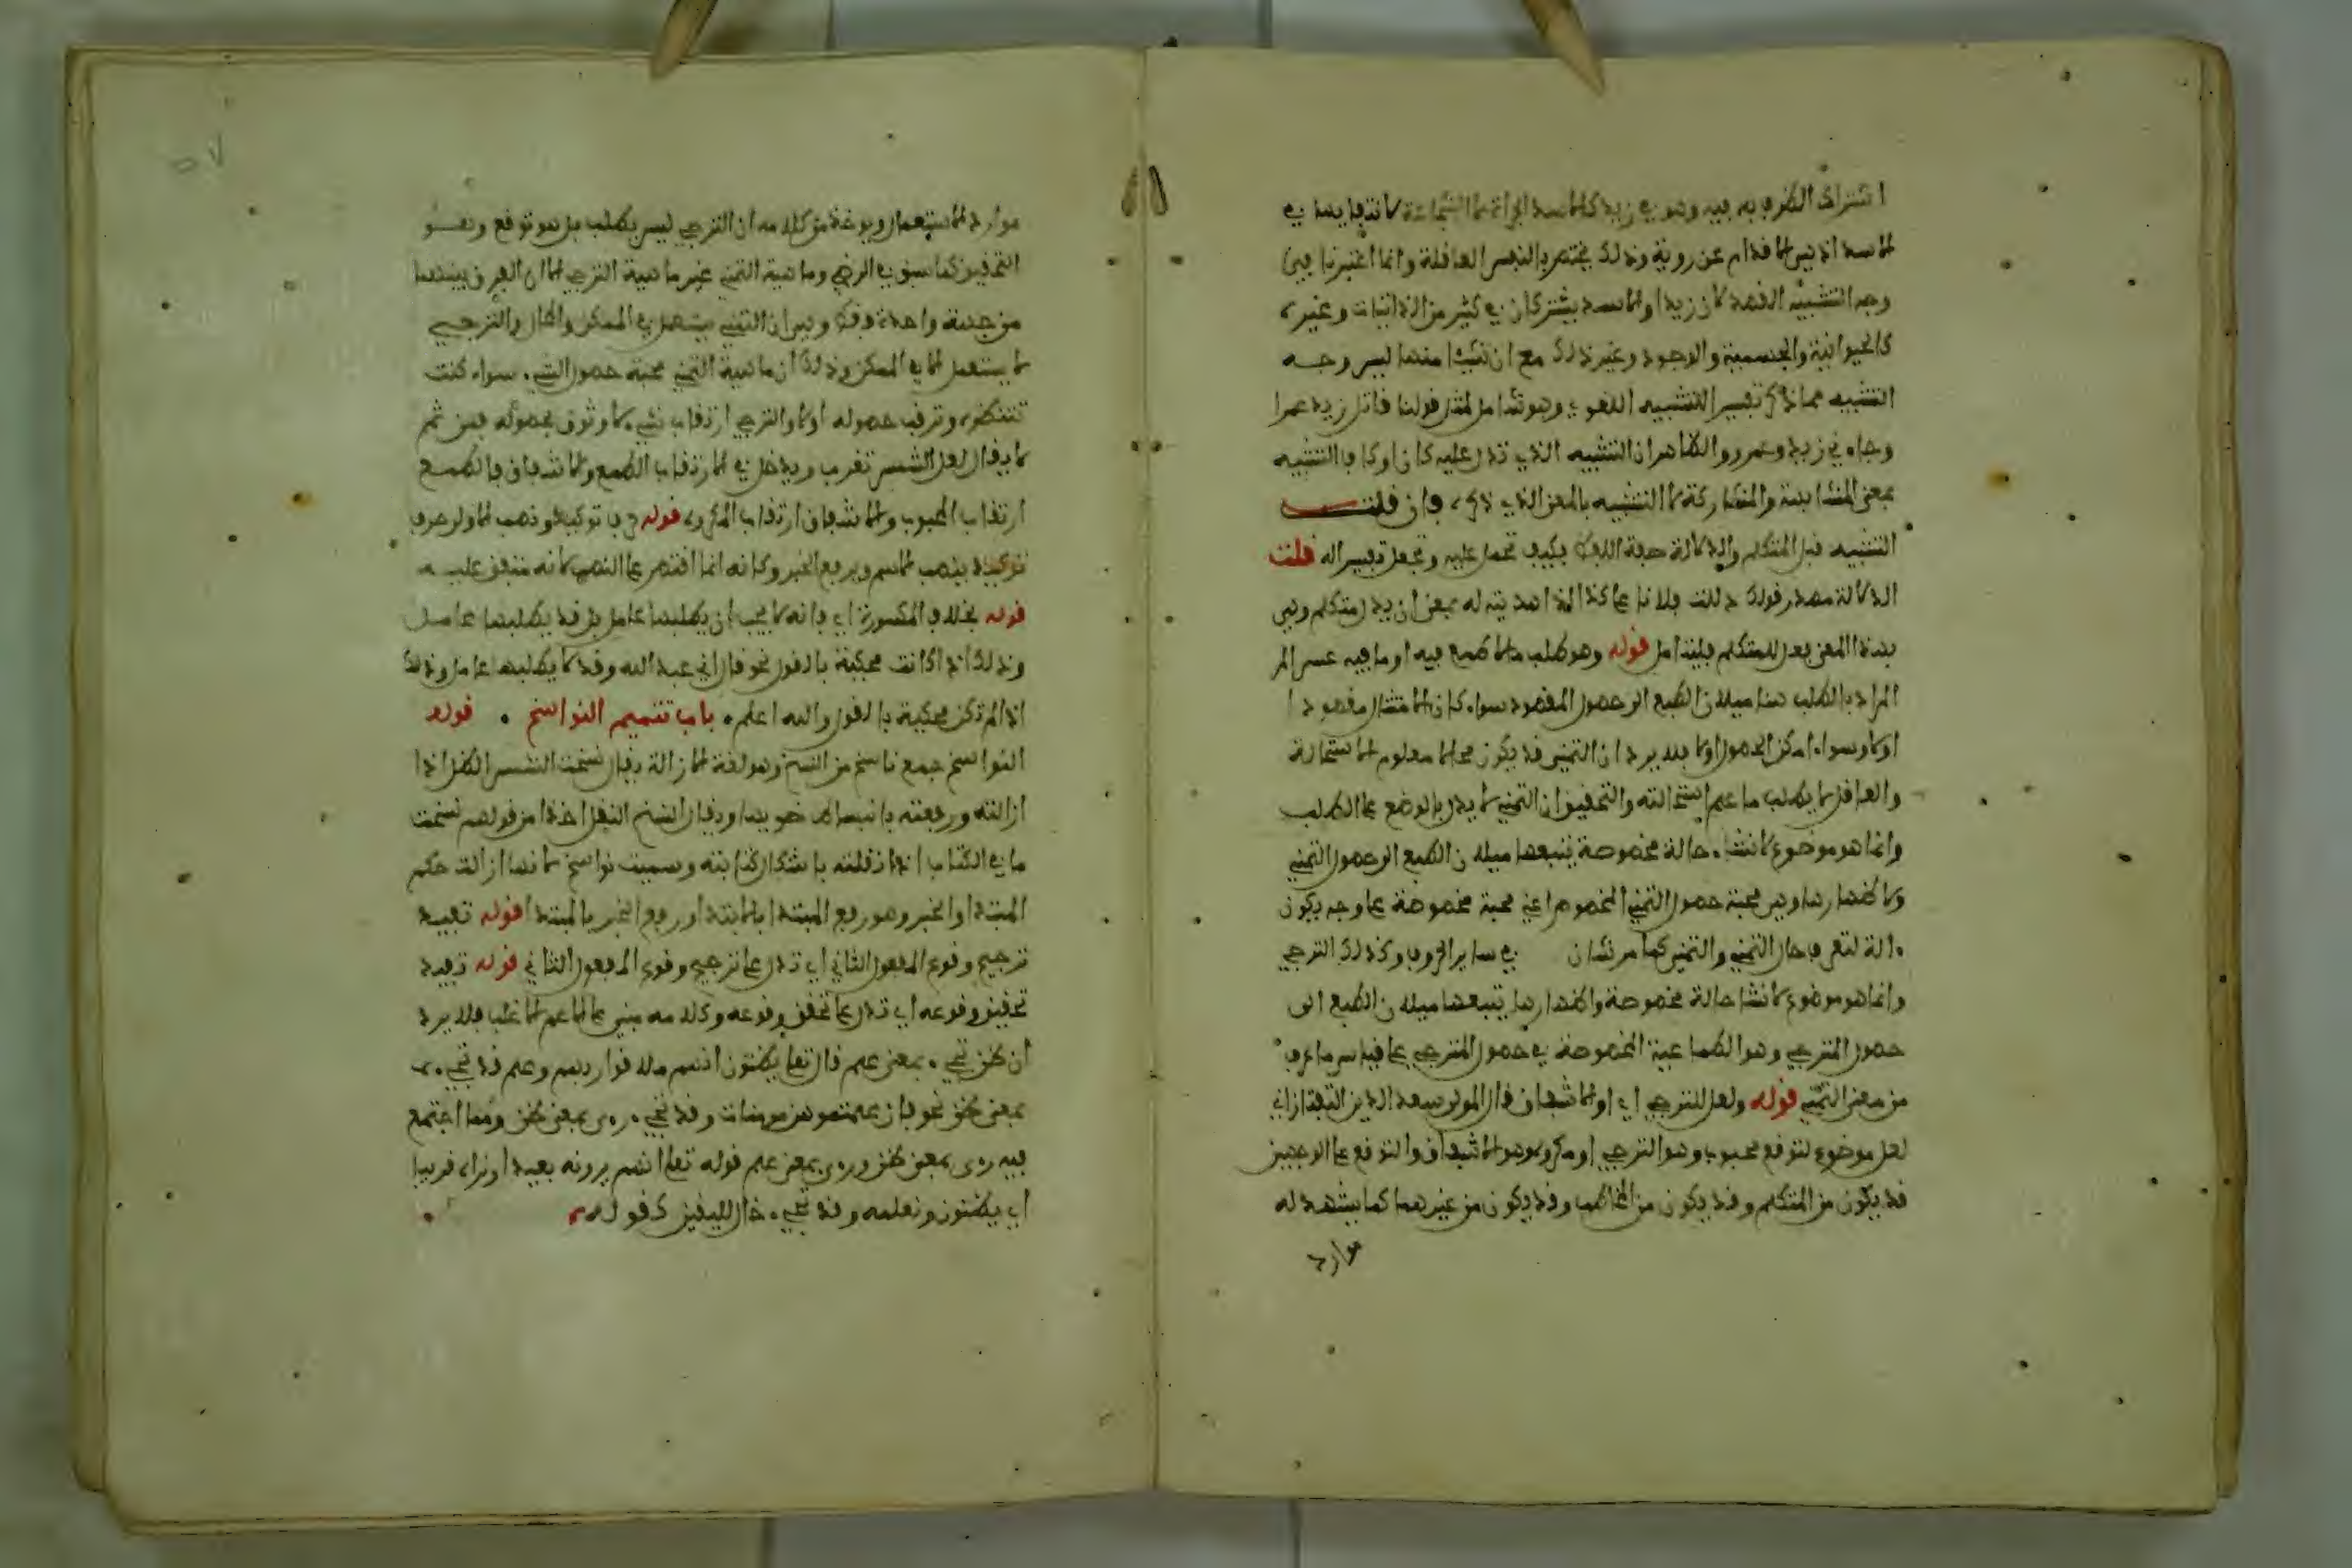 اشتراك الطرفين فيه وهو في زيد كالاسد الجراة لا الشجاعة لانتفائها في
الاسد اذ هي الاقدام عن روية وذلك يختص بالنفس العاقلة وانما اعتبرنا في
وجه التشبيه القصد لان زيدا والاسد يشتركان في كثير من الذاتيات وغيرها
كالحيوانية والجسمية والوجود وغير ذلك مع ان شيئا منها ليس وجه
التشبيه فما ذكر تفسير للتشبيه اللغوي وهو شامل لمثل قولنا قاتل زيد عمرا
وجاءني زيد وعمرو والظاهر ان التشبيه الذي تدل عليه كان او كاف التشبيه
بمعنى المشابهة والمشاركة لا التشبيه بالمعنى الذي ذكره فان قلت
التشبيه فعل المتكلم والدلالة صفة اللفظ فكيف تحمل عليه وتجعل تفسيرا له قلت
الدلالة مصدر قولك دللت فلانا على كذا اذا هديته له بمعنى ان يدل متكلم وهي
بهذا المعنى فعل للمتكلم فليتامل قوله وهو طلب ما لا طمع فيه او ما فيه عسر المر
المراد بالطلب هنا ميلان الطبع الى حصول المقصود سواء كان الامتثال مقصودا
اولا وسواء امكن الحصول اولا فلا يرد ان التمني قد يكون محالا معلوم الاستحالة
والعاقل لا يطلب ما علم استحالته والتحقيق ان التمني لا يدل بالوضع على الطلب
وانما هو موضوع لانشاء حالة مخصوصة يتبعها ميلان الطبع الى حصول التمني
ولاظهارها وهي محبة حصول التمني المخصوص اعني محبة مخصوصة على وجه يكون
ءالة لتعرف حال التمني والتمني كما مر نشان في ساير الحروف وكذلك الترجي
وانما هو موضوع لانشاء حالة مخصوصة واظهارها يتبعها ميلان الطبع الى
حصول المترجي وهو الطماعية المخصوصة في حصول المترجي على قياس ما عرف
من معنى التمني قوله ولعل للترجي اي او الاشفاق قال المولى سعد الدين التفتازاني
لعل موضوع لتوقع محبوب وهو الترجي او مكروه وهو الاشفاق والتوقع على الوجهين
قد يكون من المتكلم وقد يكون من المخاطب وقد يكون من غيرهما كما يشهد له
موارد
موارد الاستعمال ويوخذ من كلامه ان الترجي ليس بطلب بل هو توقع وهو
التحقيق كما سبق في الرضي وماهية التمني غير ماهية الترجي لا ان الفرق بينهما
من جهة واحدة فقط وهي ان التمني يستعمل في الممكن والمحال والترجي
لا يستعمل الا في الممكن وذلك ان ماهية التمني محبة حصول الشيء سواء كنت
تنتظره وترقب حصوله اولا والترجي ارتقاب شيء لا وثوق بحصوله فمن ثم
لا يقال لعل الشمس تغرب ويدخل في الارتقاب الطمع والاشفاق فالطمع
ارتقاب المحبوب والاشفاق ارتقاب المكروه قوله حرفا توكيد وذهب الاول حرف
توكيد ينصب الاسم ويرفع الخبر وكانه انما اقتصر على النصب لانه متفق عليه
قوله بخلاف المكسورة اي فانه لا يجب ان يطلبها عامل بل قد يطلبها عامل
وذلك اذا كانت محكية بالقول نحو قال اني عبد الله وقد لا يطلبها عامل وذلك
اذا لم تكن محكية بالقول والله اعلم . باب تتميم النواسخ . قوله
النواسخ جمع ناسخ من النسخ وهو لغة الازالة يقال نسخت الشمس الظل اذا
ازالته ورفعته بانبساط ضويها ويقال النسخ النقل اخذا من قولهم نسخت
ما في الكتاب اذا نقلته باشكال كتابته وسميت نواسخ لانها ازالت حكم
المبتدا والخبر وهو رفع المبتدا بالابتدا ورفع الخبر بالمبتدا قوله تفيد
ترجيح وقوع المفعول الثاني اي تدل على ترجيح وقوع المفعول الثاني قوله تفيد
تحقيق وقوعه اي تدل على تحقق وقوعه وكلامه مبني على الاعم الاغلب فلا يرد
ان ظن تجيء بمعنى علم قال تعلى يظنون انهم ملاقوا ربهم وعلم قد تجيء
بمعنى ظن نحو فان علمتموهن مومنات وقد تجيء رءى بمعنى ظن ومما اجتمع
فيه رءى بمعنى ظن ورءى بمعنى علم قوله تعلى انهم يرونه بعيدا ونراه قريبا
اي يظنون ونعلمه وقد تجيء خال لليقين كقوله